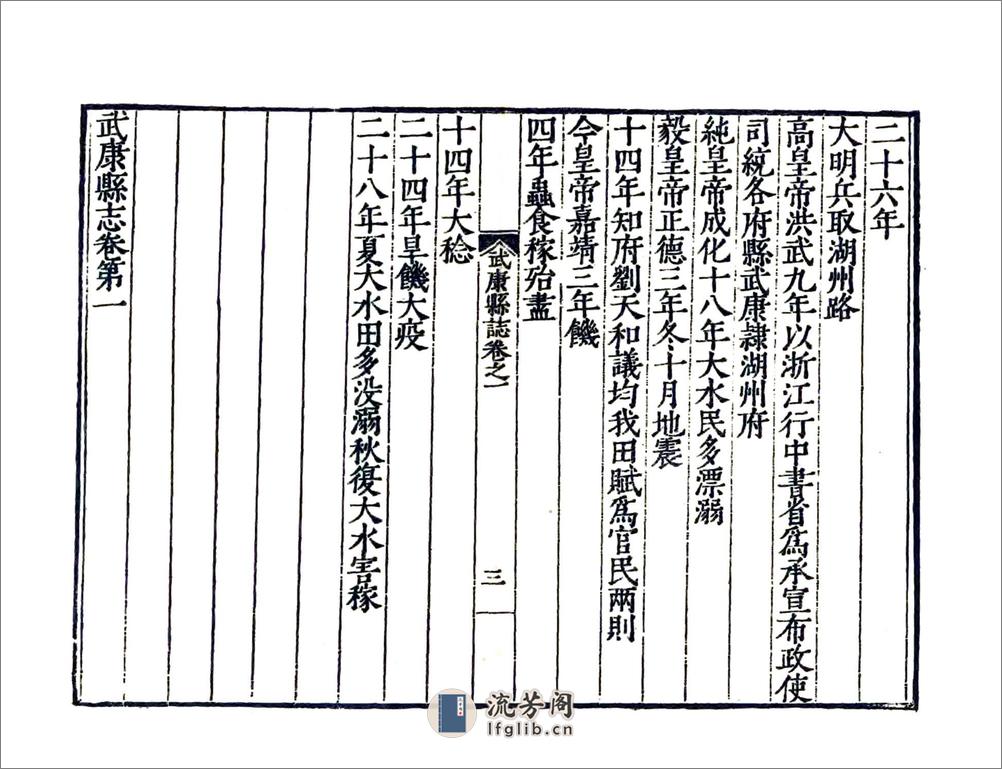 二十六年
大明兵取湖州路
高皇帝洪武九年以浙江行中書省爲承宣布政使
司統各府縣武康隸湖州府
純皇帝成化十八年大水民多漂溺
毅皇帝正德三年冬十月地震
十四年知府劉天和議均我田賦爲官民兩則
今皇帝嘉靖三年饑
四年蟲食稼殆盡
武康縣誌卷之一
三
十四年大稔
二十四年旱饑大疫
二十八年夏大水田多没溺秋復大水害稼
武康縣志卷第一
流芳阁
lfglib.cn